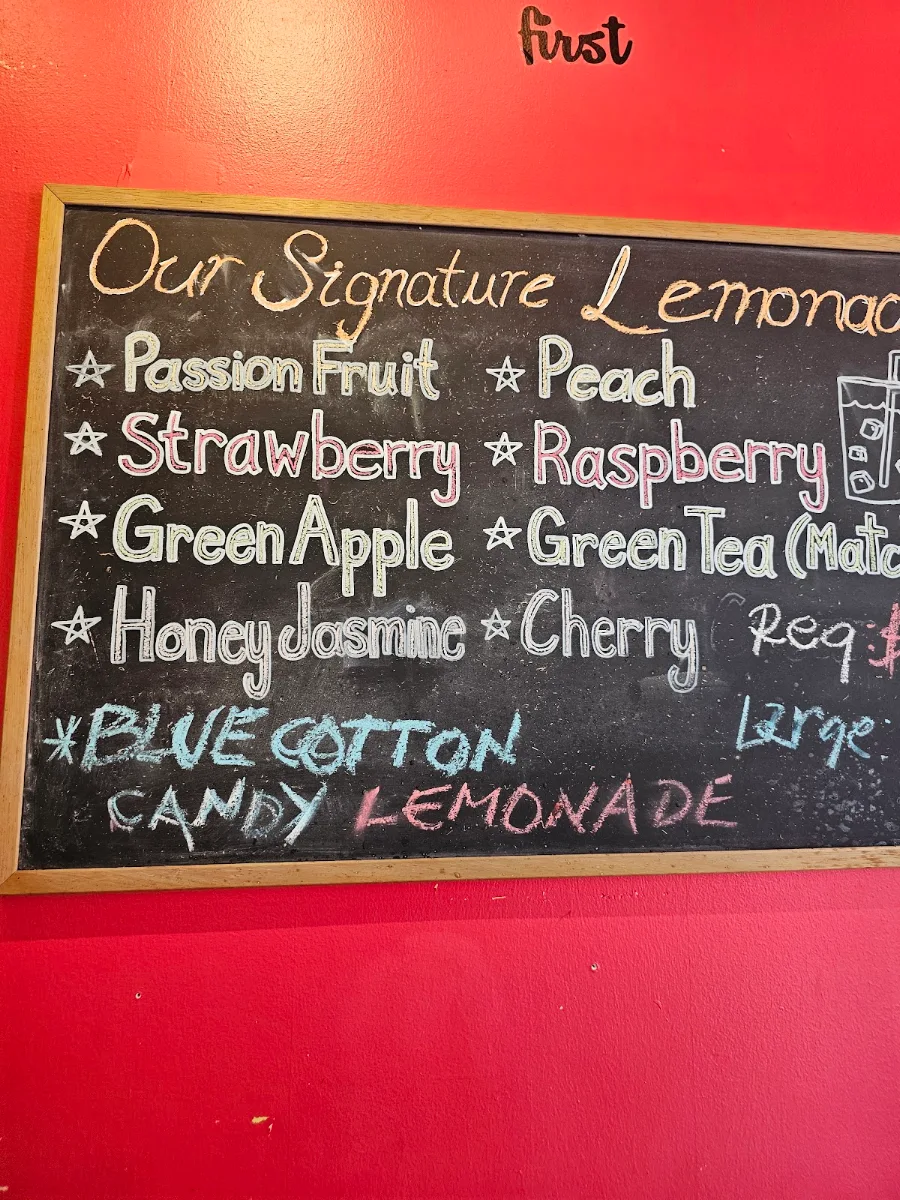 first
Our Signature Lemonad
☆ Passion Fruit ☆ Peach
☆ Strawberry ☆ Raspberry
☆ Green Apple ☆ Green Tea (Matc
☆ Honey Jasmine ☆ Cherry Req: $
*BLUE COTTON Large:
CANDY LEMONADE